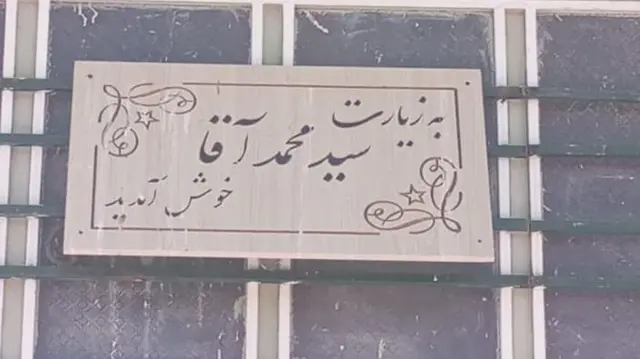 به زیارت
سید محمد آقا
خوش آمدید